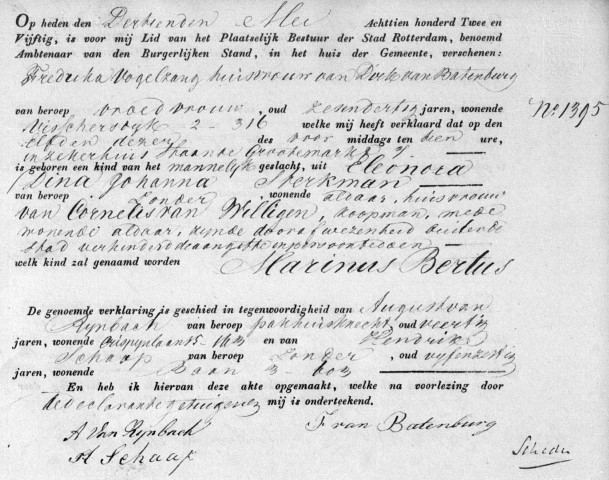 Op heden den Dertienden Mei Achttien honderd Twee en
Vijftig, is voor mij Lid van het Plaatselijk Bestuur der Stad Rotterdam, benoemd
Ambtenaar van den Burgerlijken Stand, in het huis der Gemeente, verschenen:
Fredrika Vogelzang huisvrouw van Dirk van Batenburg
van beroep vroedvrouw, oud jaren, wonende
Visschersdyk 2-316 welke mij heeft verklaard dat op den
elfden dezer des voor middags ten tien ure,
in zeker huis staande Grootemarkt
is geboren een kind van het mannelyk geslacht, uit Eleonora
Dina Johanna Sterkman
van beroep Zonder, wonende aldaar, huisvrouw
van Cornelis van Willigen, koopman, mede
wonende aldaar, zynde door afwezenheid buiten de
stad verhinderd de aangifte in persoon te doen
welk kind zal genaamd worden Marinus Bertus
De genoemde verklaring is geschied in tegenwoordigheid van August van
Rynbach van beroep pakhuisknecht, oud veertig
jaren, wonende 15-163 en van Hendrik
Schaap van beroep Zonder, oud vyfenzestig
jaren, wonende Baan 3-603
En heb ik hiervan deze akte opgemaakt, welke na voorlezing door
de declarante getuigen mij is onderteekend.
A Van Rynbach F van Batenburg
H Schaap
No. 1395